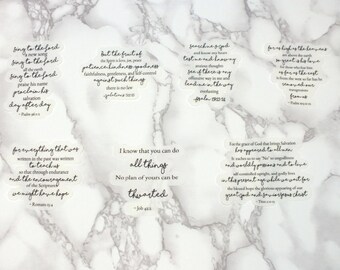 sing to the Lord
a new song
sing to the Lord
all the earth
sing to the Lord
praise his name
proclaim his
salvation
day after day
but the fruit of
the Spirit is love, joy, peace,
patience, kindness, goodness
faithfulness, gentleness, and self-control
against such things
there is no law
search me o god
and know my heart
test me and know my
anxious thoughts
see if there is any
offensive way in me and
lead me in the way
everlasting
for as high as the heavens
are above the earth
so great is his love
for those who fear him
as far as the east
is from the west
removed our
transgressions
from us
for everything that was
written in the past was written
to teach us
so that through endurance
and the encouragement
of the Scriptures
we might have hope
- Romans 15:4
I know that you can do
all things
No plan of yours can be
thwarted
- Job 42:2
For the grace of God that brings Salvation
has appeared to all men
It teaches us to say "No" to ungodliness
and worldly passions and to live
self-controlled upright, and godly lives
in this present age while we wait for
the blessed hope the glorious appearing of our
great God and savior jesus christ